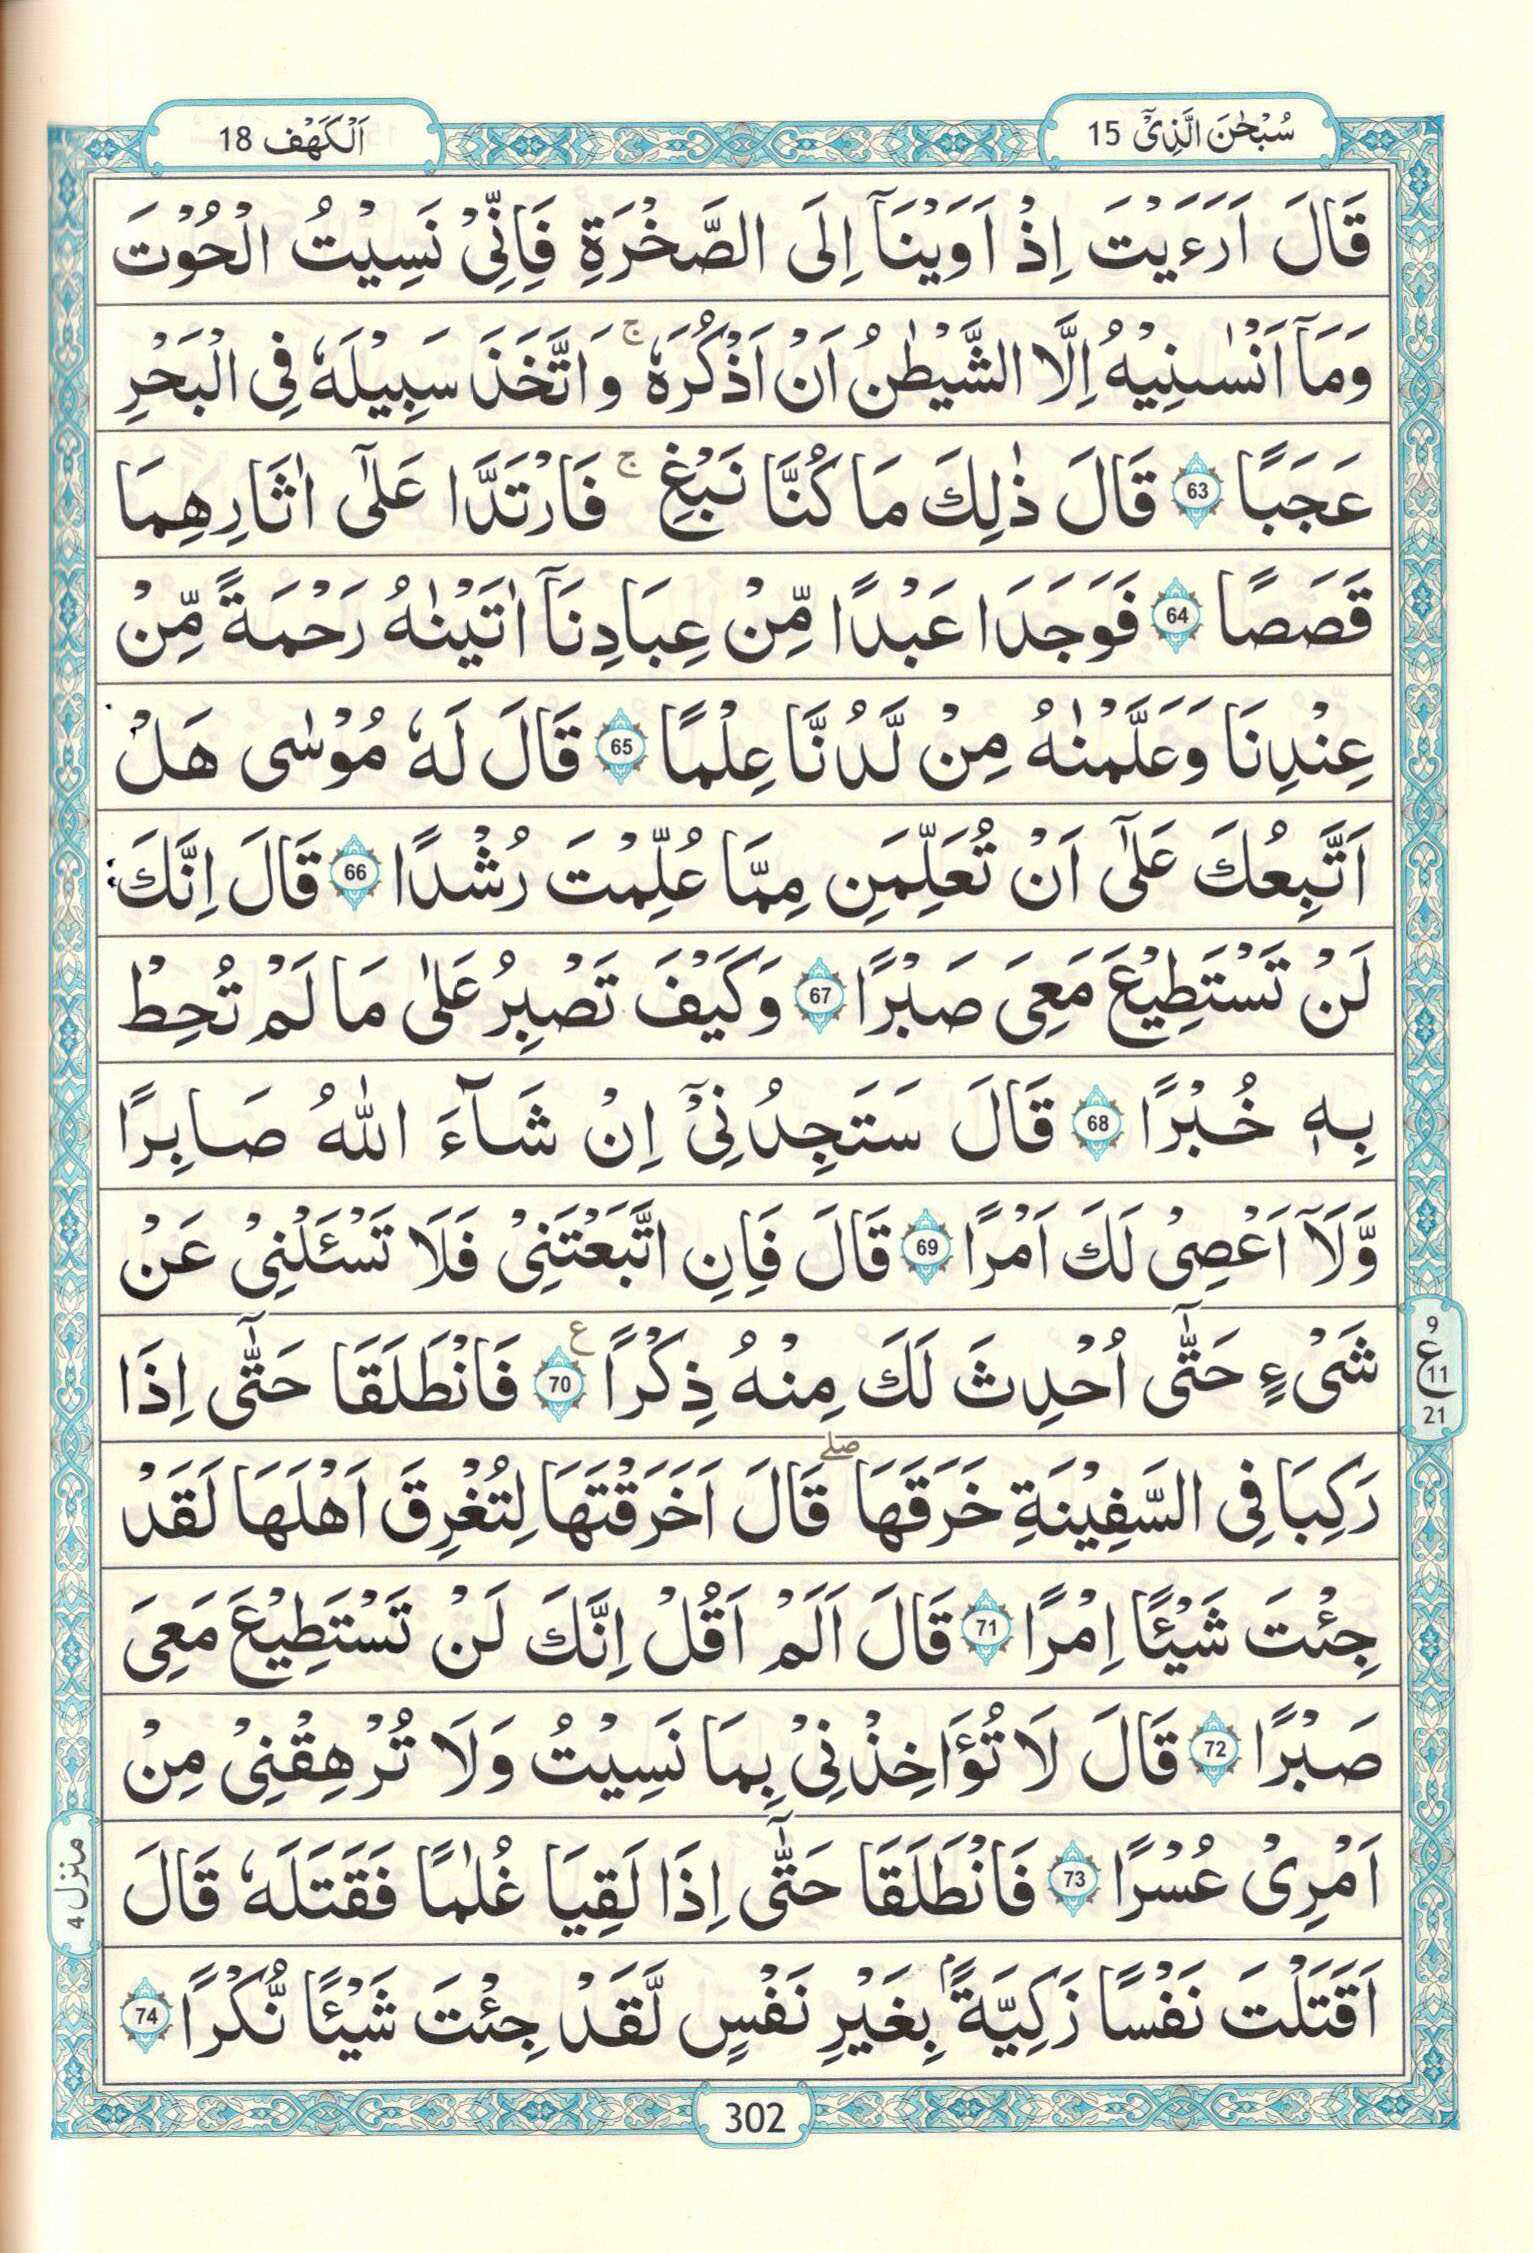 سُبْحٰنَ الَّذِیْٓ 15
اَلْكَهْف 18
قَالَ اَرَءَیْتَ اِذْ اَوَیْنَاۤ اِلَی الصَّخْرَةِ فَاِنِّیْ نَسِیْتُ الْحُوْتَ
وَمَاۤ اَنْسٰىنِیْهُ اِلَّا الشَّیْطٰنُ اَنْ اَذْكُرَهٗ ۚ وَاتَّخَذَ سَبِیْلَهٗ فِی الْبَحْرِ
عَجَبًا 63 قَالَ ذٰلِكَ مَا كُنَّا نَبْغِ ۚ فَارْتَدَّا عَلٰۤی اٰثَارِهِمَا
قَصَصًا 64 فَوَجَدَا عَبْدًا مِّنْ عِبَادِنَاۤ اٰتَیْنٰهُ رَحْمَةً مِّنْ
عِنْدِنَا وَعَلَّمْنٰهُ مِنْ لَّدُنَّا عِلْمًا 65 قَالَ لَهٗ مُوْسٰی هَلْ
اَتَّبِعُكَ عَلٰۤی اَنْ تُعَلِّمَنِ مِمَّا عُلِّمْتَ رُشْدًا 66 قَالَ اِنَّكَ
لَنْ تَسْتَطِیْعَ مَعِیَ صَبْرًا 67 وَكَیْفَ تَصْبِرُ عَلٰی مَا لَمْ تُحِطْ
بِهٖ خُبْرًا 68 قَالَ سَتَجِدُنِیْۤ اِنْ شَآءَ اللّٰهُ صَابِرًا
وَّلَاۤ اَعْصِیْ لَكَ اَمْرًا 69 قَالَ فَاِنِ اتَّبَعْتَنِیْ فَلَا تَسْـَٔلْنِیْ عَنْ
شَیْءٍ حَتّٰۤی اُحْدِثَ لَكَ مِنْهُ ذِكْرًا ع 70 فَانْطَلَقَا حَتّٰۤی اِذَا
9
ع
11
21
رَكِبَا فِی السَّفِیْنَةِ خَرَقَهَا ۖ قَالَ اَخَرَقْتَهَا لِتُغْرِقَ اَهْلَهَا لَقَدْ
جِئْتَ شَیْـًٔا اِمْرًا 71 قَالَ اَلَمْ اَقُلْ اِنَّكَ لَنْ تَسْتَطِیْعَ مَعِیَ
صَبْرًا 72 قَالَ لَا تُؤَاخِذْنِیْ بِمَا نَسِیْتُ وَلَا تُرْهِقْنِیْ مِنْ
اَمْرِیْ عُسْرًا 73 فَانْطَلَقَا حَتّٰۤی اِذَا لَقِیَا غُلٰمًا فَقَتَلَهٗ قَالَ
منزل 4
اَقَتَلْتَ نَفْسًا زَكِیَّةًۢ بِغَیْرِ نَفْسٍ لَّقَدْ جِئْتَ شَیْـًٔا نُّكْرًا 74
302